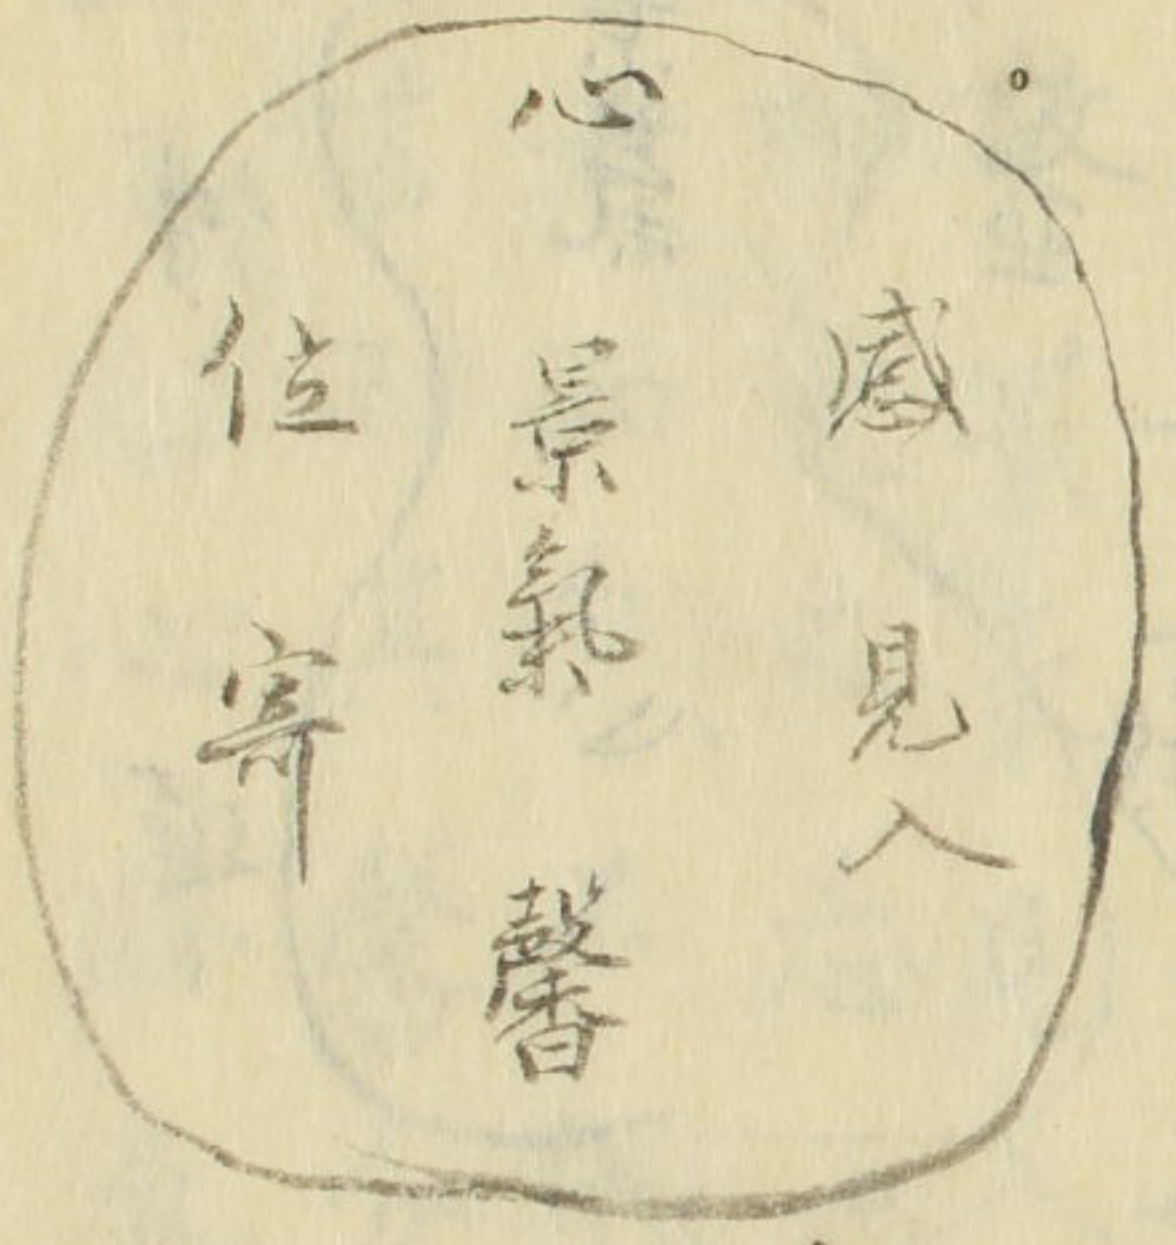 感 見入
心 景氣 馨
位 寄